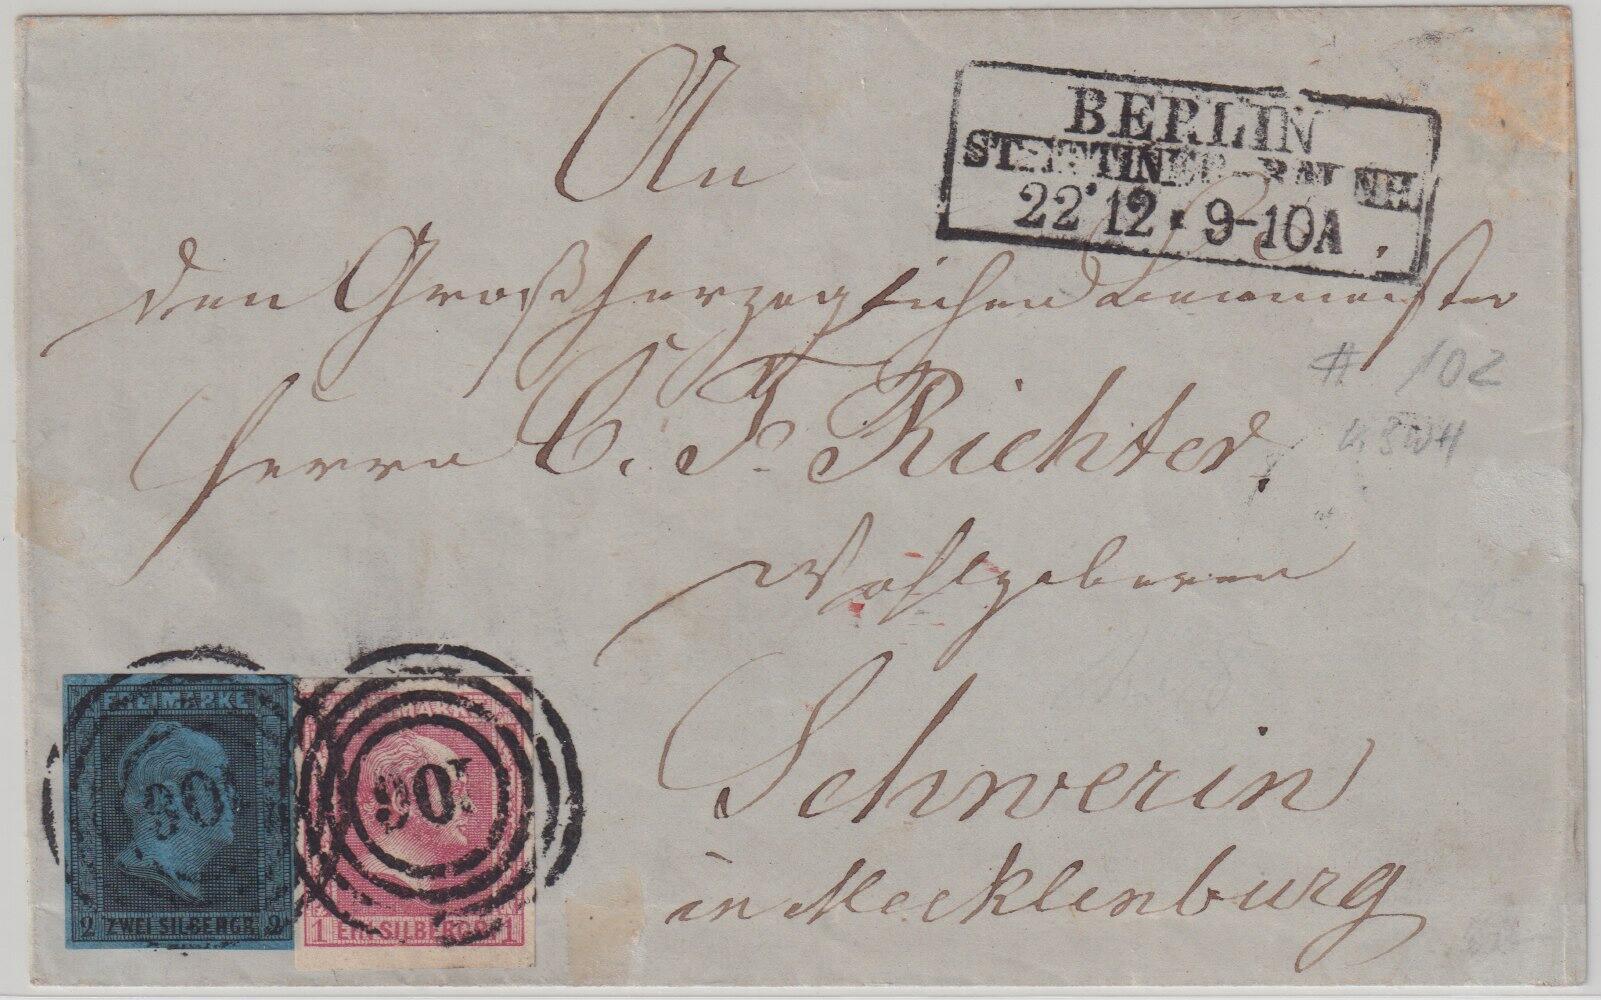 BERLIN
STETTINER-BAHNH.
22 12 · 9-10A
An
den Großherzoglichen
Herrn C. F. Richter,
Wohlgeboren
Schwerin
in Mecklenburg
# 102
FREIMARKE
90
2 ZWEI SILBERGR. 2
MARKE
90
1 EIN SILBERGR. 1